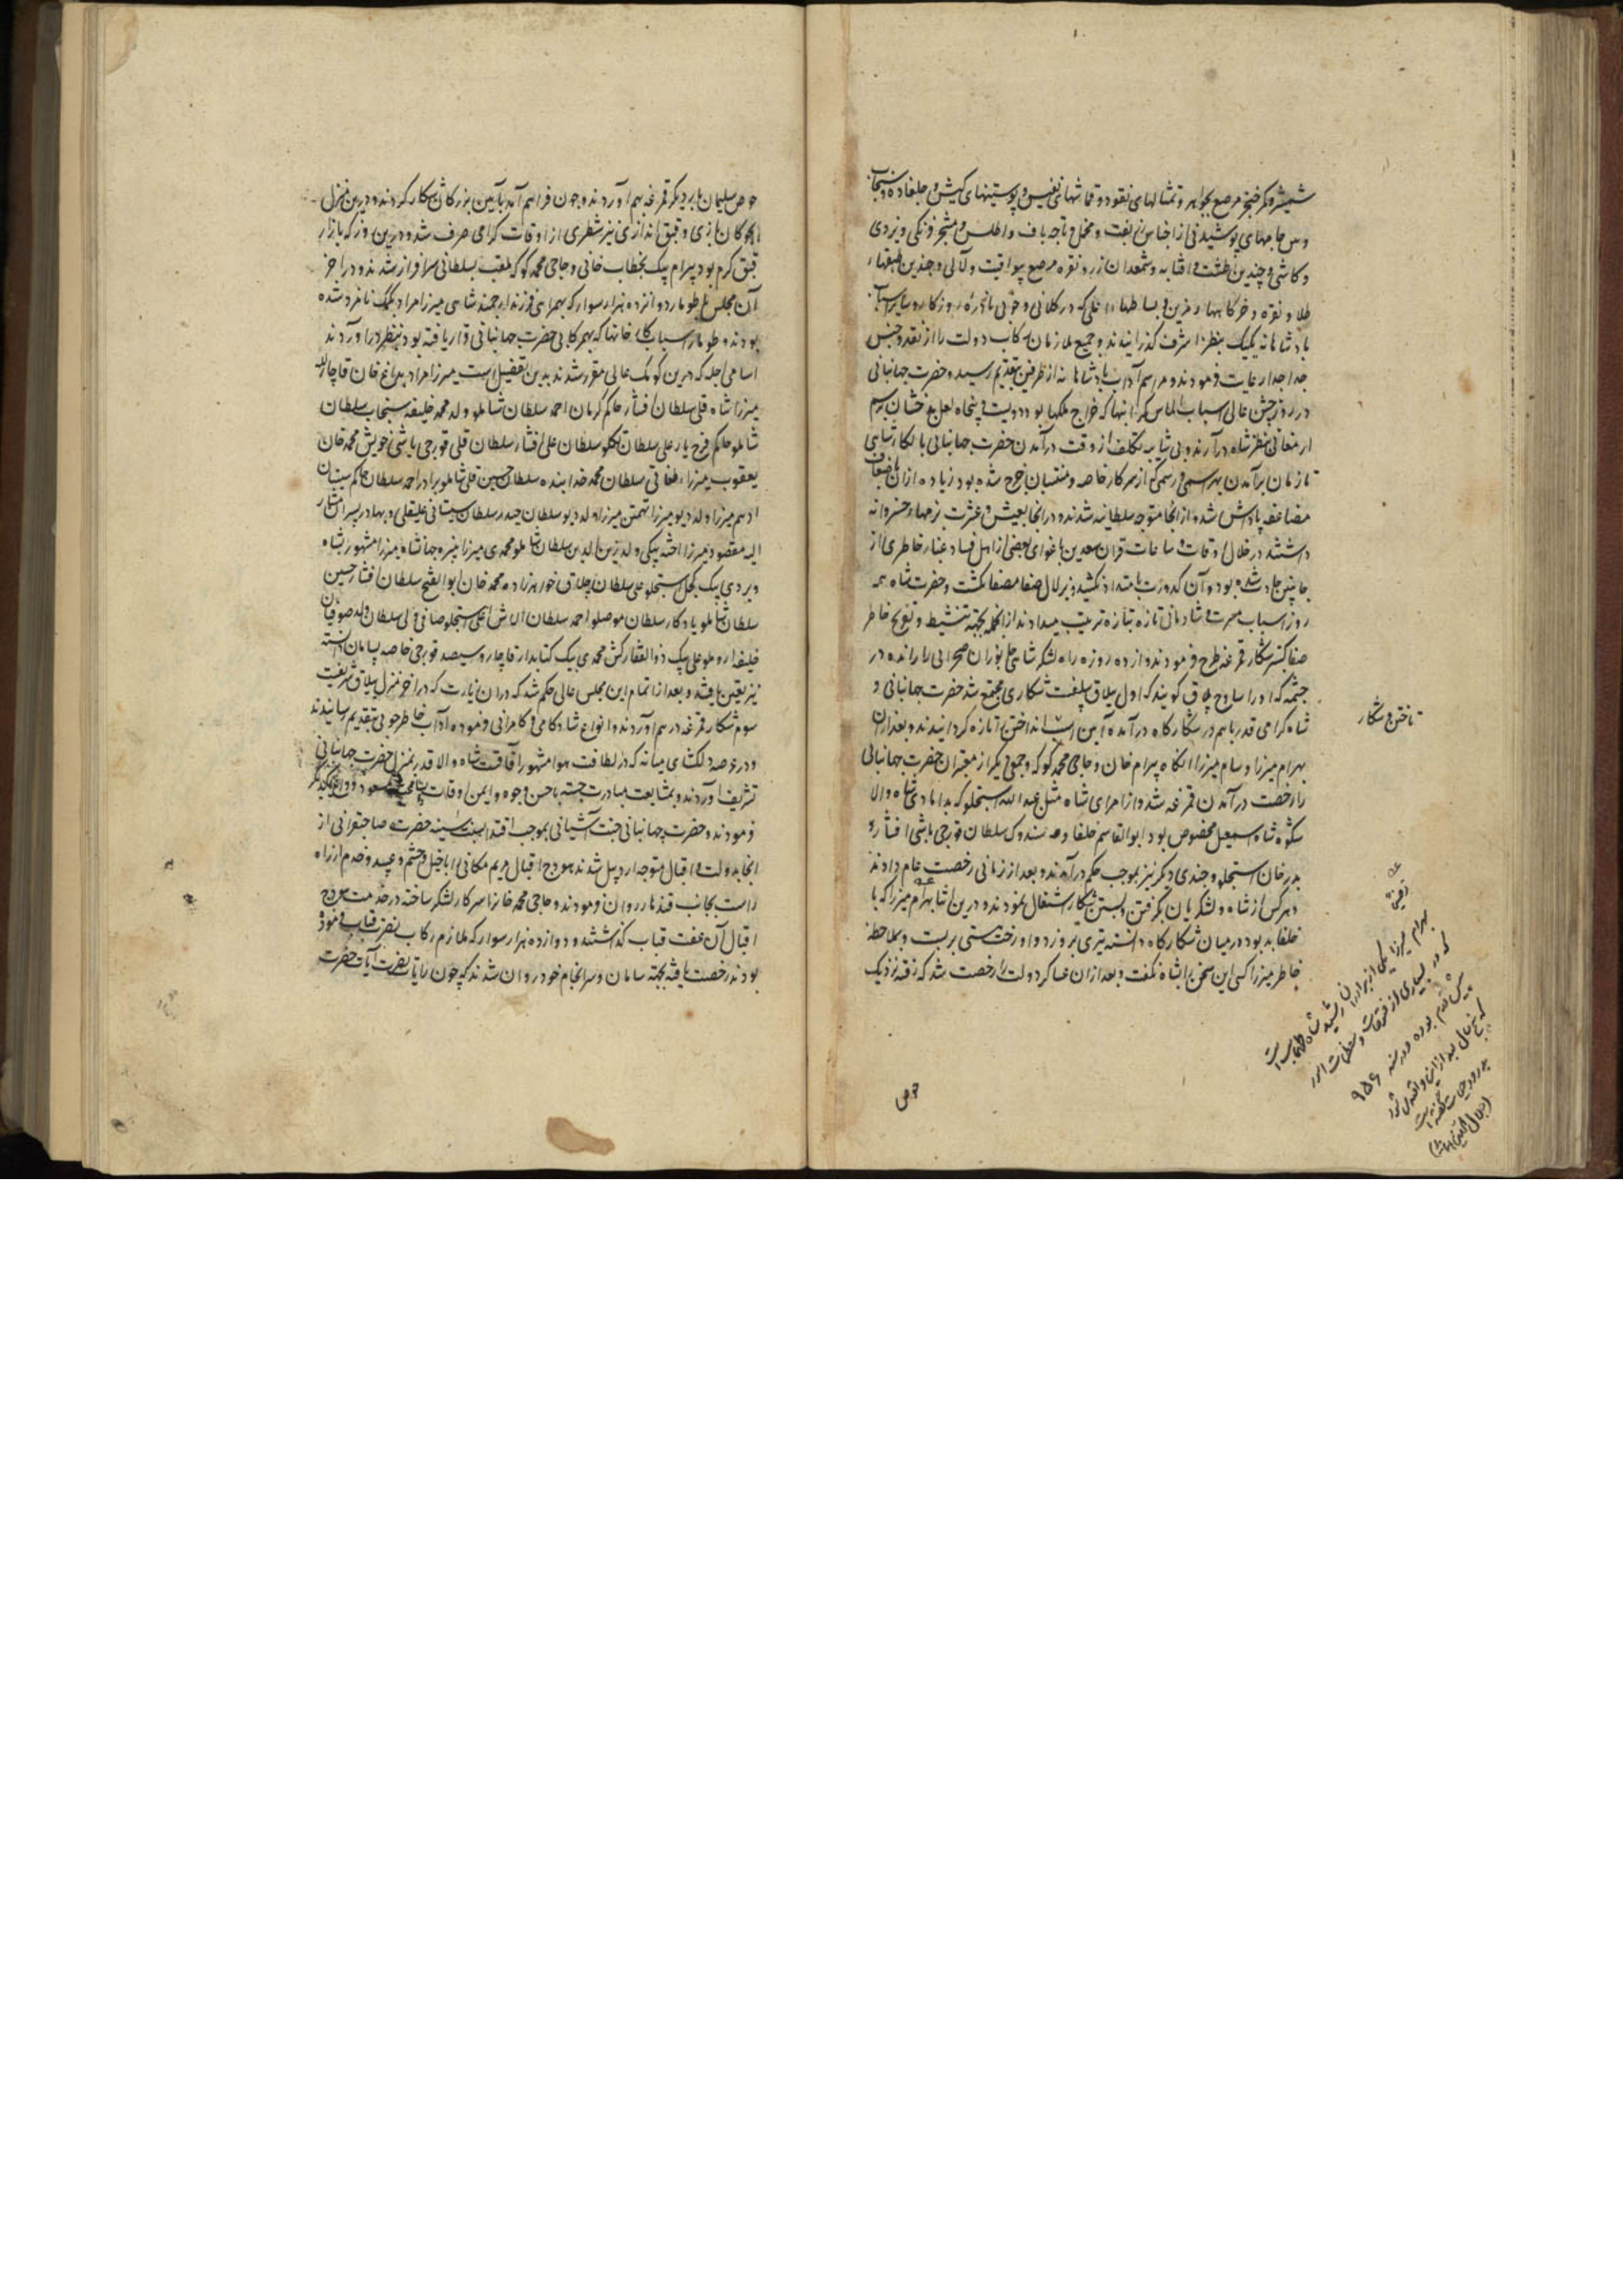 شمشیر و کمر خنجر مرصع بجواهر و تمثالهای نقود و قماشهای نفیس و پوستینهای کیش و جلغاده و سنجاب
و بس جامهای پوشیدنی از اجناس زربفت و مخمل و تاجه باف و اطلس و مشجر فرنگی و یزدی
و کاشی و چندین طشت و آفتابه و شمعدان زر و نقره مرصع بیواقیت و لآلی و چندین طبقهاء
طلا و نقره و خرگاهها و مزین و بساطهاء اعلی که در کلانی و خوبی نادرهٔ روزگار و سایر اسباب
بادشاهانه یکیک بنظر اشرف گذرانیدند و جمیع ملازمان رکاب دولت را از نقد و جنس
جدا جدا رعایت فرمودند و مراسم آداب بادشاهانه از طرفین بتقدیم رسید و حضرت جهانبانی
در روز جشن عالی اسباب الماس گرانبها که خراج ملکها بود و دویست و پنجاه لعل بدخشان برسم
ارمغانی بنظر شاه درآوردند و بی شایبه تکلف از وقت درآمدن حضرت جهانبانی بالکاء شاهی
تا زمان برآمدن بهر اسمی و رسمی که از سرکار خاصه و منتسبان خرج شده بود زیاده ازان باضعاف
مضاعفه پاداش شده از انجا متوجه سلطانیه شدند و درانجا بعیش و عشرت بزمهاء خسروانه
داشتند در خلال اوقات و ساعات قران سعدین باغوای بعضی از اهل فساد غبار خاطری از
جانبین حادث شده بود و آن کدورت بامتداد نکشید و بزلال صفا مصفا گشت و حضرت شاه همه
روز اسباب مسرت و شادمانی تازه بتازه ترتیب میدادند از انجمله بجهته تنشیط و تفریح خاطر
صفا گستر شکار قمرغه طرح فرمودند و از ده روزه راه لشکر شاهی جانوران صحرائی را رانده در
چشمه که او را ساوج بلاق گویند که اول ییلاق پیلغت شکاری مجتمع شد حضرت جهانبانی و
شاه گرامی قدر باهم در شکارگاه درآمده آیین اسب انداختن را تازه گردانیدند و بعد ازان
بهرام میرزا و سام میرزا آنگاه بیرام خان و حاجی محمد کوکه و جمعی دیگر از مقتبران حضرت جهانبانی
را رخصت درآمدن قمرغه شد و از امرای شاه مثل عبدالله استجلو که بدامادی شاه والا
شکوه شاه اسمعیل مخصوص بود ابوالقاسم خلفا و سوندوک سلطان قورچی باشی افشار و
بدر خان استجلو و چندی دیگر نیز بموجب حکم درآمدند و بعد از زمانی رخصت عام دادند
و هر کس از شاه و لشکریان بگرفتن و بستن شکار اشتغال نمودند و درین اثنا بهرام میرزا که با
خلفا بد بود در میان شکارگاه دانسته تیری برو زد و او رخت هستی بربست و بملاحظهٔ
خاطر میرزا کسی این سخن را بشاه نگفت و بعد ازان عساکر دولت را رخصت شد که رفته نزدیک
تاختن و شکار
بهرام میرزا یکی از برادران رشید شاه طهماسب است
که در بسیاری از فتوحات و معظمات امور
پیش قدم بوده و در سنه ۹۵۶
که پنج سال بعد ازین واقعه بود
بدرود حیات گفته است
حوض
حوض سلیمان باردیگر قمرغه بهم آوردند و چون فراهم آمد بآیین بزرگان شکار کردند و درین منزل
چوگان بازی و قبق اندازی نیز شطری از اوقات گرامی صرف شد و درین روز که بازار
قبق گرم بود بیرام بیک بخطاب خانی و حاجی محمد کوکه بلقب سلطانی سرافراز شدند و در آخر
آن مجلس طومار دوازده هزار سوار که بهمراهی فرزند ارجمند شاهی میرزا مراد بکمک نامزد شده
بودند و طومار اسباب کارخانها که بهمرکابی حضرت جهانبانی قرار یافته بود بنظر درآوردند
اسامی اجله که درین کومک عالی مقرر شدند بدین تفصیل است میرزا مراد بداغ خان قاجار
میرزا شاه قلی سلطان افشار حاکم کرمان احمد سلطان شاملو ولد محمد خلیفه سنجاب سلطان
شاملو حاکم فرح یار علی سلطان تکلو سلطان علی افشار سلطان قلی قورچی باشی خویش محمد خان
یعقوب میرزا طغائی سلطان محمد خدابنده سلطان حسین قلی شاملو برادر احمد سلطان حاکم سیستان
ادهم میرزا ولد دیو میرزا تهمتن میرزا ولد دیو سلطان حیدر سلطان شیبانی علیقلی و بهادر پسران مشار
الیه مقصود میرزا اخته بیکی ولد زین الدین سلطان شاملو محمدی میرزا نبیره جهانشاه میرزا مشهور بشاه
ویردی بیک کچل استجلو علی سلطان چلاق خواهرزاده محمد خان ابوالفتح سلطان افشار حسین
سلطان شاملو یادگار سلطان موصلو احمد سلطان الاش اغلی استجلو صافی ولی سلطان ولد صوفیان
خلیفه روملو علی بیک ذوالفقار کش محمدی بیک کتابدار قاجار و سیصد قورچی خاصه
نیز تعین یافتند و بعد از اتمام این مجلس عالی حکم شد که دران زیارت که در آخر منزل ییلاق
سوم شکار قمرغه درهم آوردند و انواع شادکامی و کامرانی فرموده آداب خاطرجویی بتقدیم رسانیدند
و در عرصه دلکشای میانه که در لطافت هوا مشهور آفاقست شاه والا قدر بمنزل حضرت جهانبانی
تشریف آوردند و بمشایعت مبادرت جسته باحسن وجوه و ایمن اوقات
فرمودند و حضرت جهانبانی جنت آشیانی بموجب اقتدا بسنت سنیه حضرت صاحبقرانی از
انجا بدولت و اقبال متوجه اردبیل شدند هودج اقبال مریم مکانی را با خیل و حشم و عبید و خدم از راه
راست بجانب قندهار روان فرمودند و حاجی محمد خانرا سرکار لشکر ساخته در خدمت هودج
اقبال آن عفت قباب گذاشتند و دوازده هزار سوار که ملازم رکاب نصرت قباب فرموده
بودند رخصت یافته بجهته سامان و سرانجام خود روان شدند که چون رایات نصرت آیات حضرت